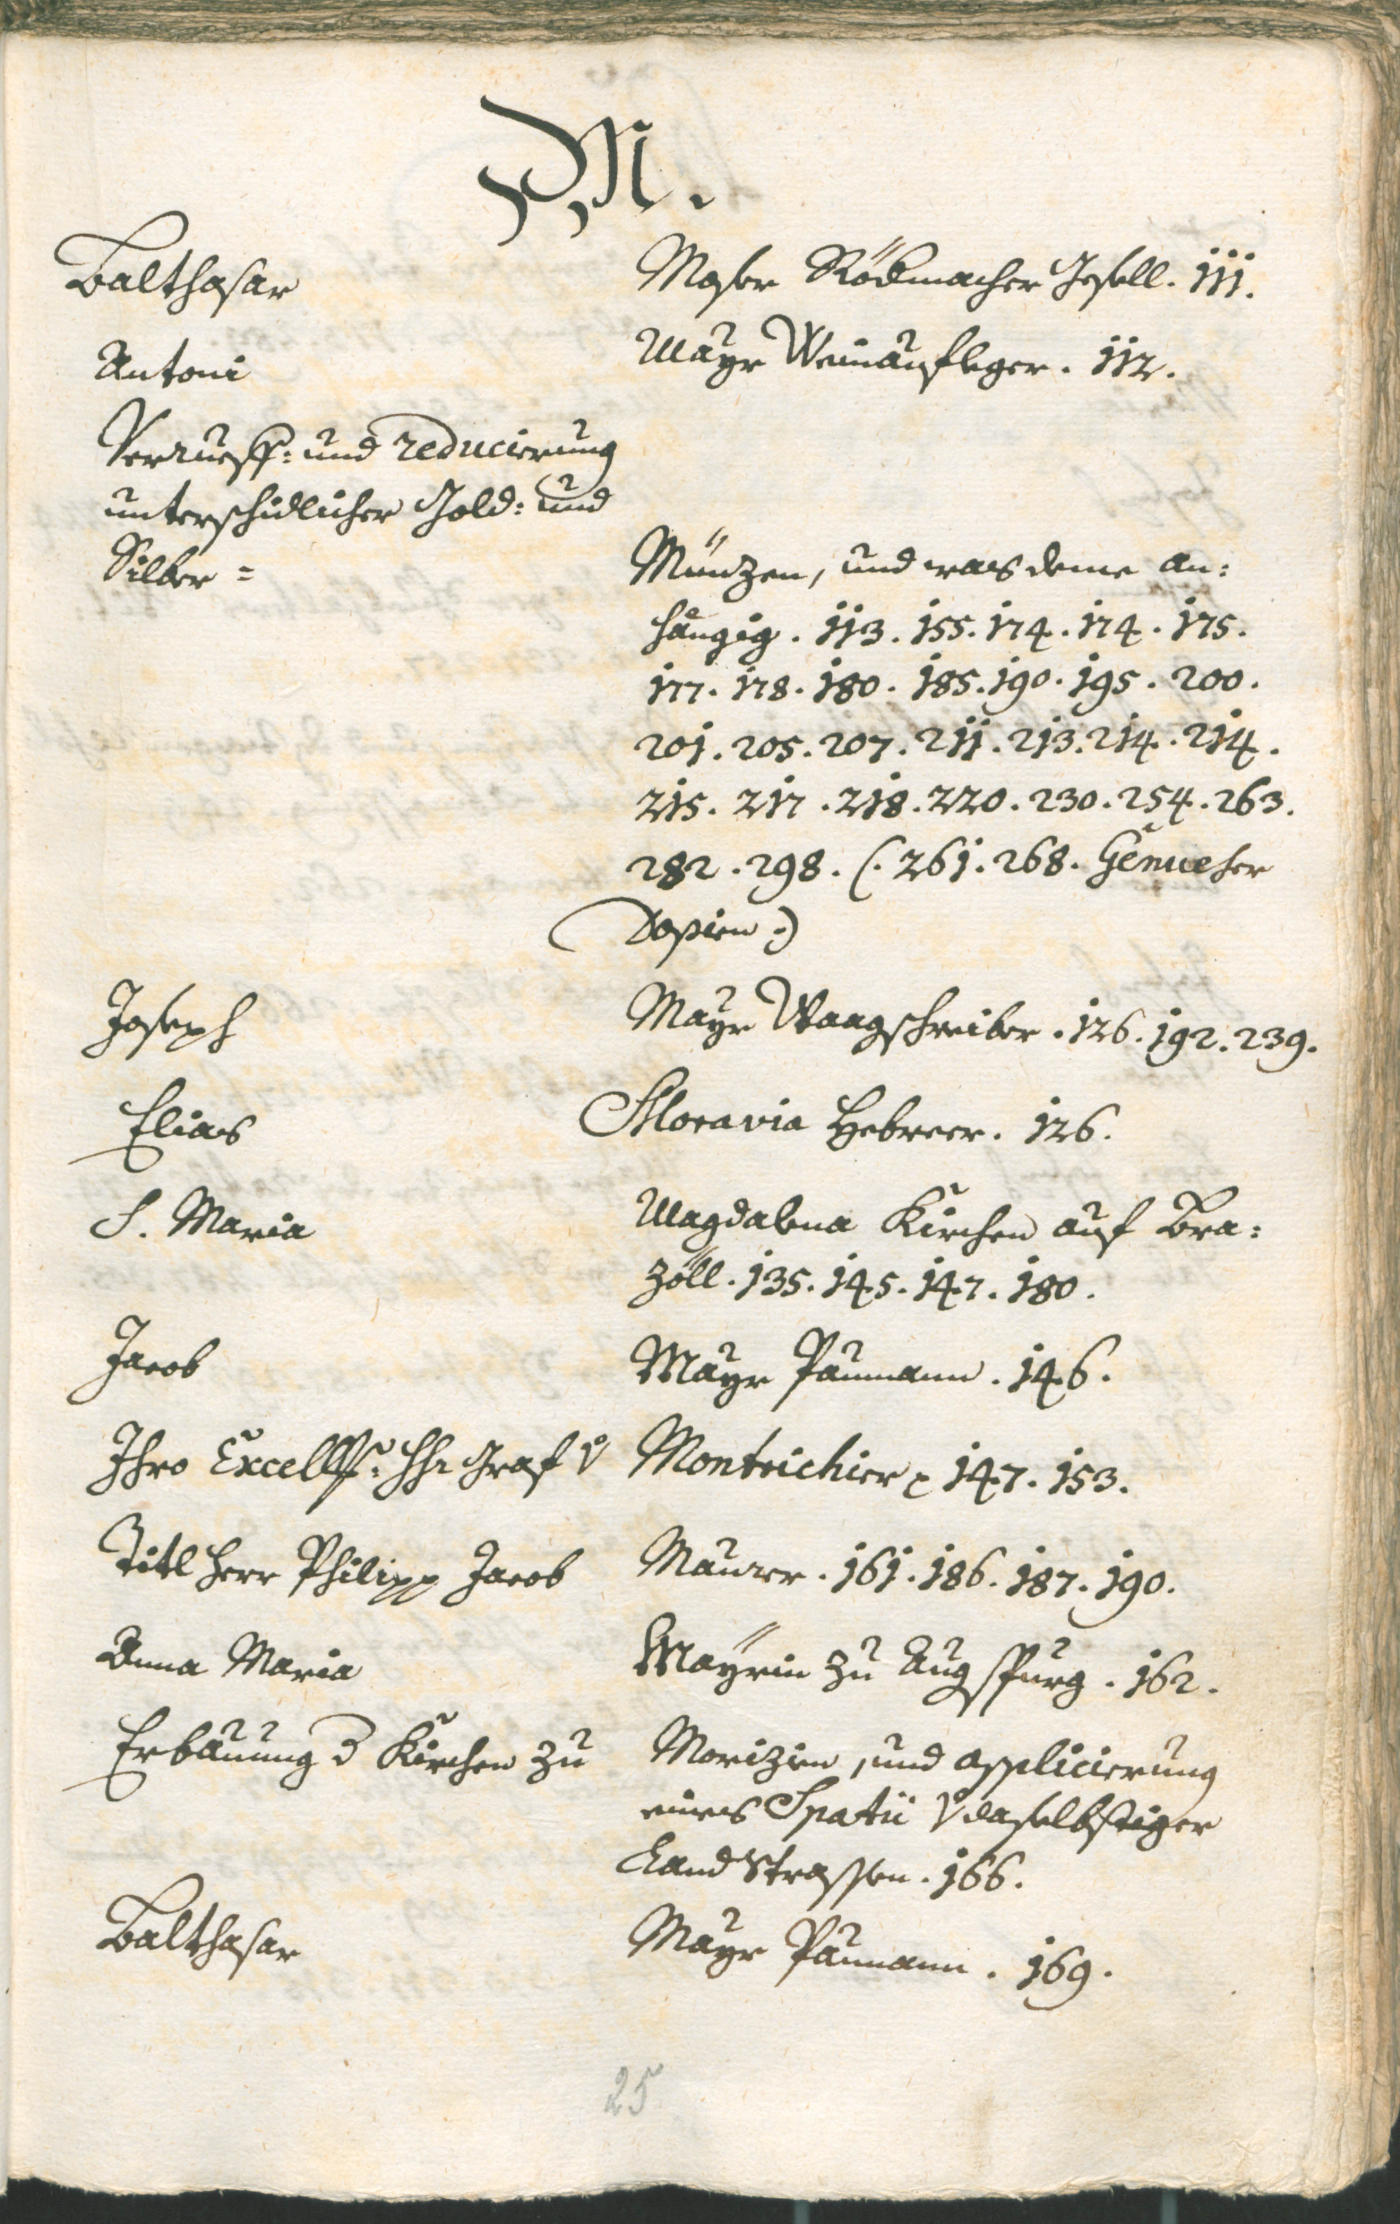 M.
Balthasar Moser Röckmacher Gesell. 111.
Antoni Mayr Weinaufleger. 112.
Verrueff: und reducierung
unterschidlicher Gold: und
Silber = Münzen, und was deme an:
hängig. 113. 155. 174. 174. 175.
177. 178. 180. 185. 190. 195. 200.
201. 205. 207. 211. 213. 214. 214.
215. 217. 218. 220. 230. 254. 263.
282. 298. (. 261. 268. Genueser
Dopien .)
Joseph Mayr Waagschreiber. 126. 192. 239.
Elias Moravia Hebreer. 126.
S. Maria Magdalena Kirchen auf Bra:
zöll. 135. 145. 147. 180.
Jacob Mayr Paumann. 146.
Ihro Excell: Graf v Montrichier 147. 153.
Titl Herr Philipp Jacob Maurer. 161. 186. 187. 190.
Anna Maria Mayrin zu Augspurg. 162.
Erbauung d Kirchen zu Morizin, und applicierung
eines Spatii v daselbstiger
Land Strassen. 166.
Balthasar Mayr Paumann. 169.
25